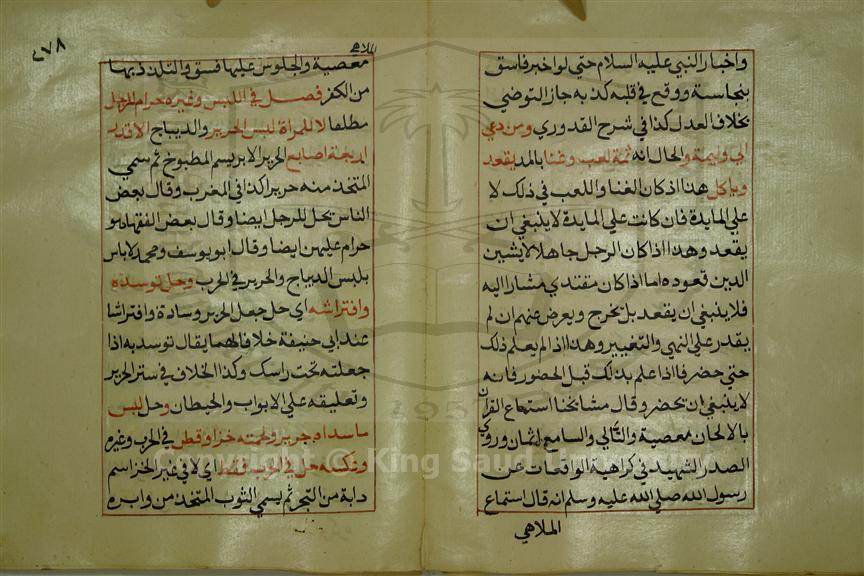 واخبار النبي عليه السلام حتي لو اخبر فاسق
بنجاسة ووقع في قلبه كذبه جاز التوضي
بخلاف العدل كذا في شرح القدوري ومن دعي
الي وليمة والحال انه ثمة لعب وغنا بالمد يقعد
وياكل هذا اذ كان الغنا واللعب في ذلك لا
علي المايدة فان كانت علي المايدة لا ينبغي ان
يقعد وهذا اذا كان الرجل جاهلا لا يشين
الدين قعوده اما اذا كان مقتدي مشارا اليه
فلا ينبغي ان يقعد بل يخرج ويعرض عنهم ان لم
يقدر علي النهي والتغيير وهذا اذا لم يعلم ذلك
حتي حضر فاذا علم بذلك قبل الحضور فانه
لا ينبغي ان يحضر وقال مشايخنا استماع القران
بالالحان معصية والتالي والسامع اثمان وروي
الصدر الشهيد في كراهية الواقعات عن
رسول الله صلي الله عليه وسلم انه قال استماع
الملاهي
٤٧٨
الملاهي
معصية والجلوس عليها فسق والتلذذ بها
من الكفر فصل في اللبس وغيره حرام للرجل
مطلقا لا للمراة لبس الحرير والديباج الا قدر
اربعة اصابع الحرير الابريسم المطبوخ ثم سمي
المتخذ منه حريرا كذا في المغرب وقال بعض
الناس يحل للرجل ايضا وقال بعض الفقها هو
حرام عليهن ايضا وقال ابو يوسف ومحمد لا باس
بلبس الديباج والحرير في الحرب وحل توسده
وافتراشه اي حل جعل الحرير وسادة وافتراشا
عند ابي حنيفة خلافا لهما يقال توسد به اذا
جعلته تحت راسك وكذا الخلاف في ستر الحرير
وتعليقه علي الابواب والحيطان وحل لبس
ما سداه حرير ولحمته خز او قطن في الحرب وغيره
وعكسه حل في الحرب فقط اي لا في غير الخز اسم
دابة من البحر ثم يسمي الثوب المتخذ من وابره
© King Saud University
1957